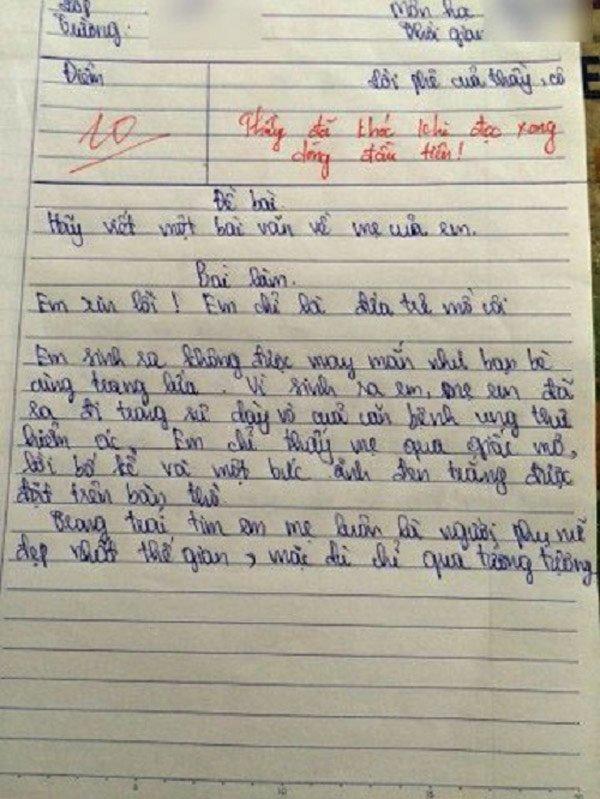 Lớp Môn học
Trường: Thời gian
Điểm Lời phê của thầy, cô
10 Thầy đã khóc khi đọc xong
dòng đầu tiên!
Đề bài.
Hãy viết một bài văn về mẹ của em.
Bài làm.
Em xin lỗi! Em chỉ là đứa trẻ mồ côi
Em sinh ra không được may mắn như bạn bè
cùng trang lứa. Vì sinh ra em, mẹ em đã
ra đi trong sự dày vò của căn bệnh ung thư
hiểm ác. Em chỉ thấy mẹ qua giấc mơ,
lời bố kể và một bức ảnh đen trắng được
đặt trên bàn thờ.
Trong trái tim em mẹ luôn là người phụ nữ
đẹp nhất thế gian, mặc dù chỉ qua tưởng tượng
10 15